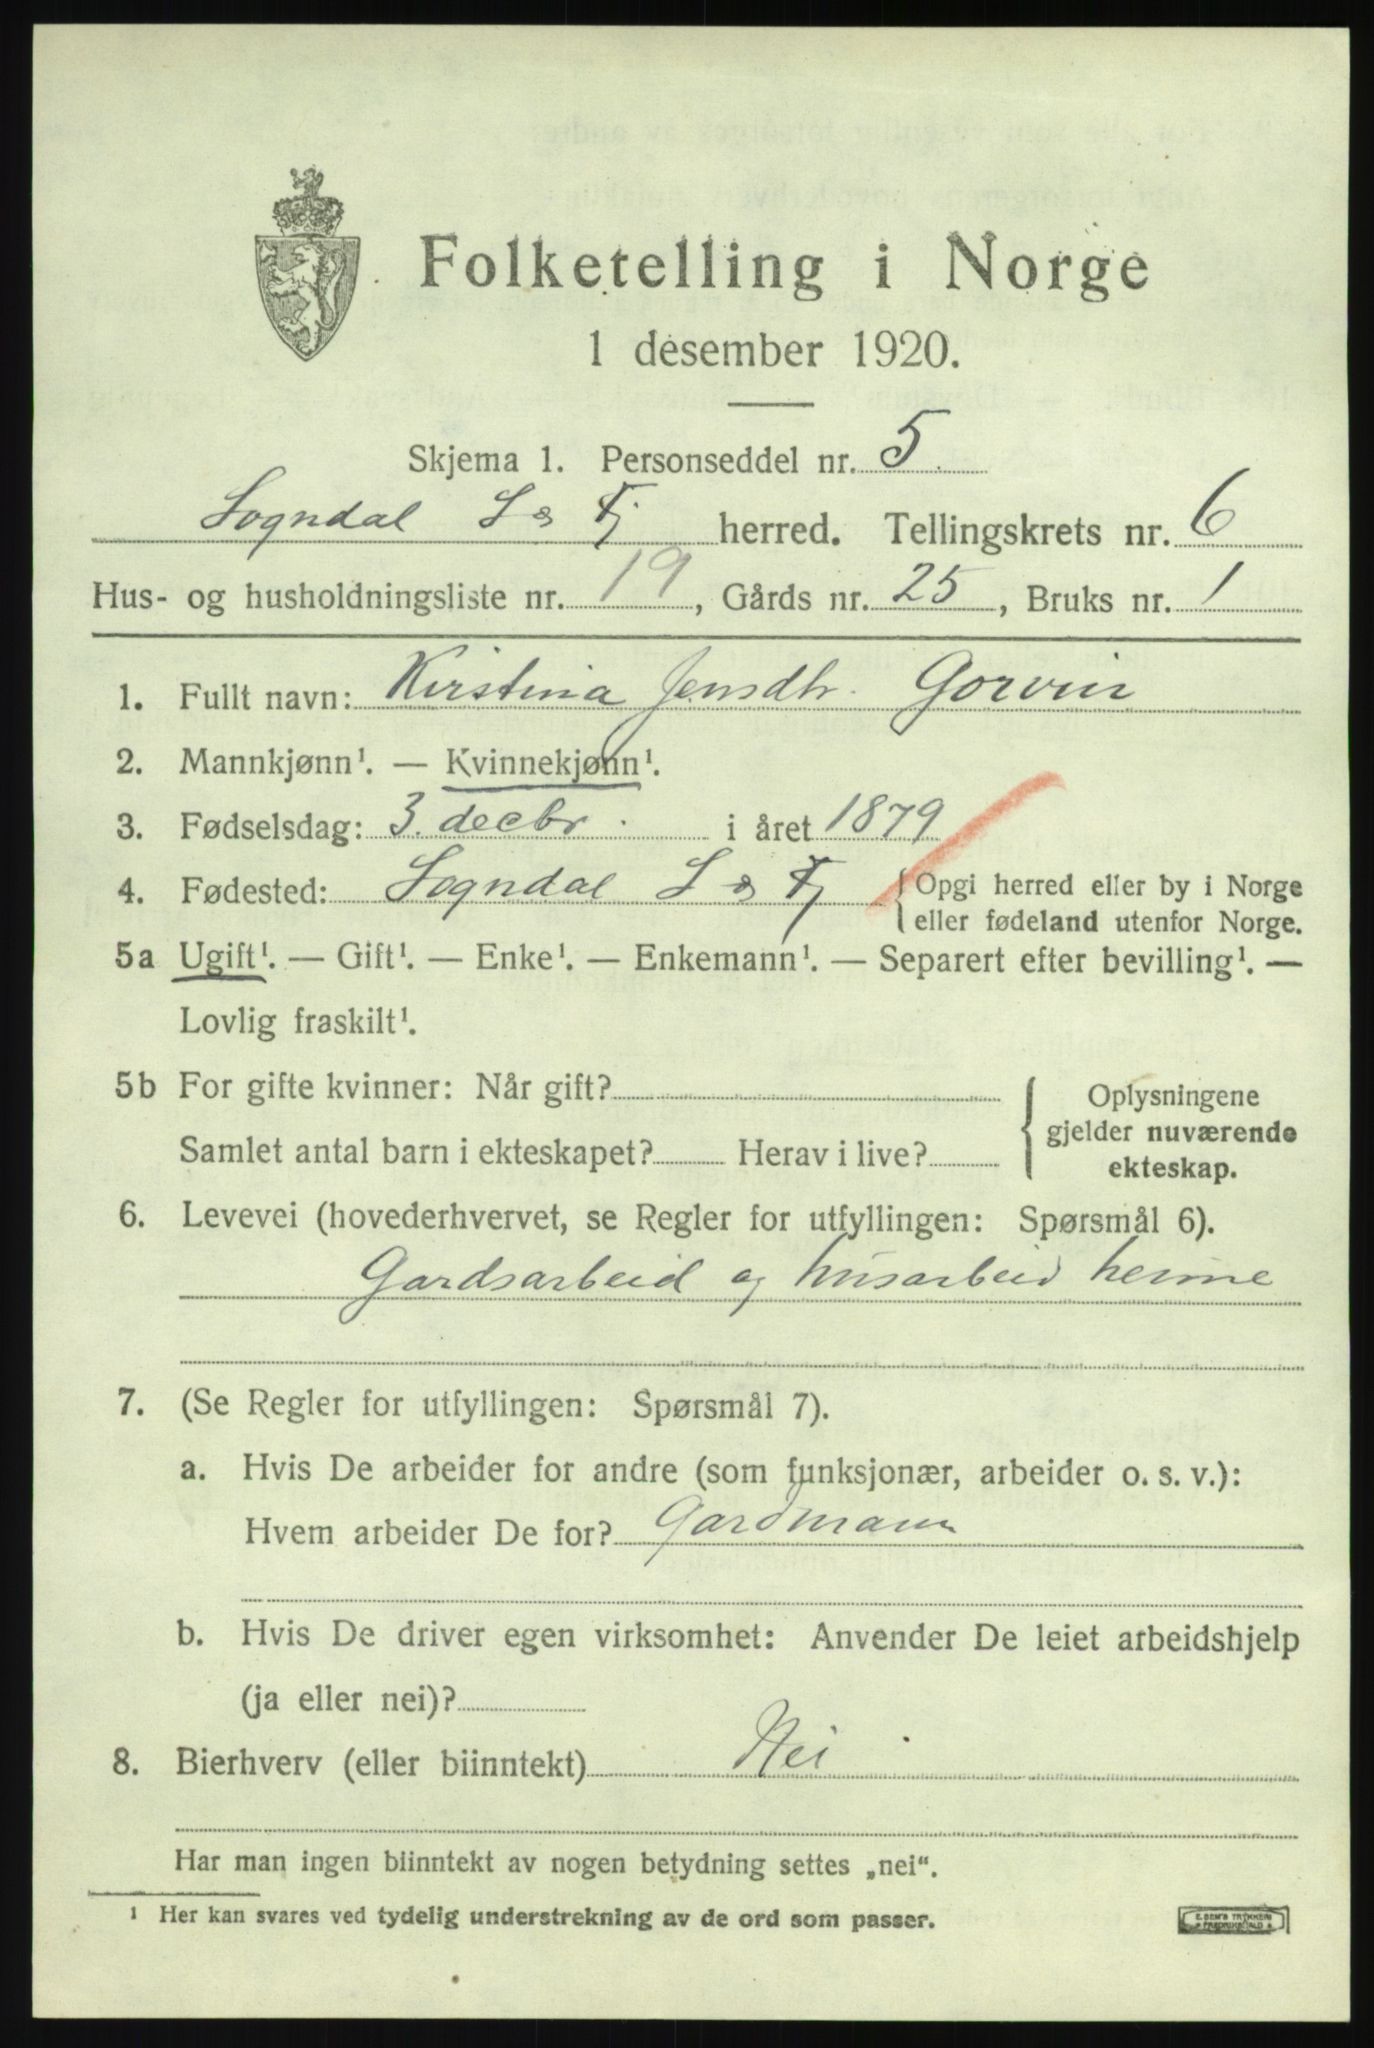 Folketelling i Norge
1 desember 1920.
Skjema 1. Personseddel nr. 5.
Sogndal S o Fj herred. Tellingskrets nr. 6
Hus- og husholdningsliste nr. 19, Gårds nr. 25, Bruks nr. 1
1. Fullt navn: Kirstina Jensdtr. Gorvin
2. Mannkjønn¹. — Kvinnekjønn¹.
3. Fødselsdag: 3. decbr. i året 1879
4. Fødested: Sogndal S o Fj { Opgi herred eller by i Norge
eller fødeland utenfor Norge.
5a Ugift¹. — Gift¹. — Enke¹. — Enkemann¹. — Separert efter bevilling¹. —
Lovlig fraskilt¹.
5b For gifte kvinner: Når gift?
Samlet antal barn i ekteskapet? Herav i live?
{ Oplysningene
gjelder nuværende
ekteskap.
6. Levevei (hovederhvervet, se Regler for utfyllingen: Spørsmål 6).
Gardsarbeid og husarbeid heime
7. (Se Regler for utfyllingen: Spørsmål 7).
a. Hvis De arbeider for andre (som funksjonær, arbeider o. s. v.):
Hvem arbeider De for? Gardmann
b. Hvis De driver egen virksomhet: Anvender De leiet arbeidshjelp
(ja eller nei)?
8. Bierhverv (eller biinntekt) Nei
Har man ingen biinntekt av nogen betydning settes „nei“.
¹ Her kan svares ved tydelig understrekning av de ord som passer.
E. SEM'S TRYKKERI
FREDRIKSHALD